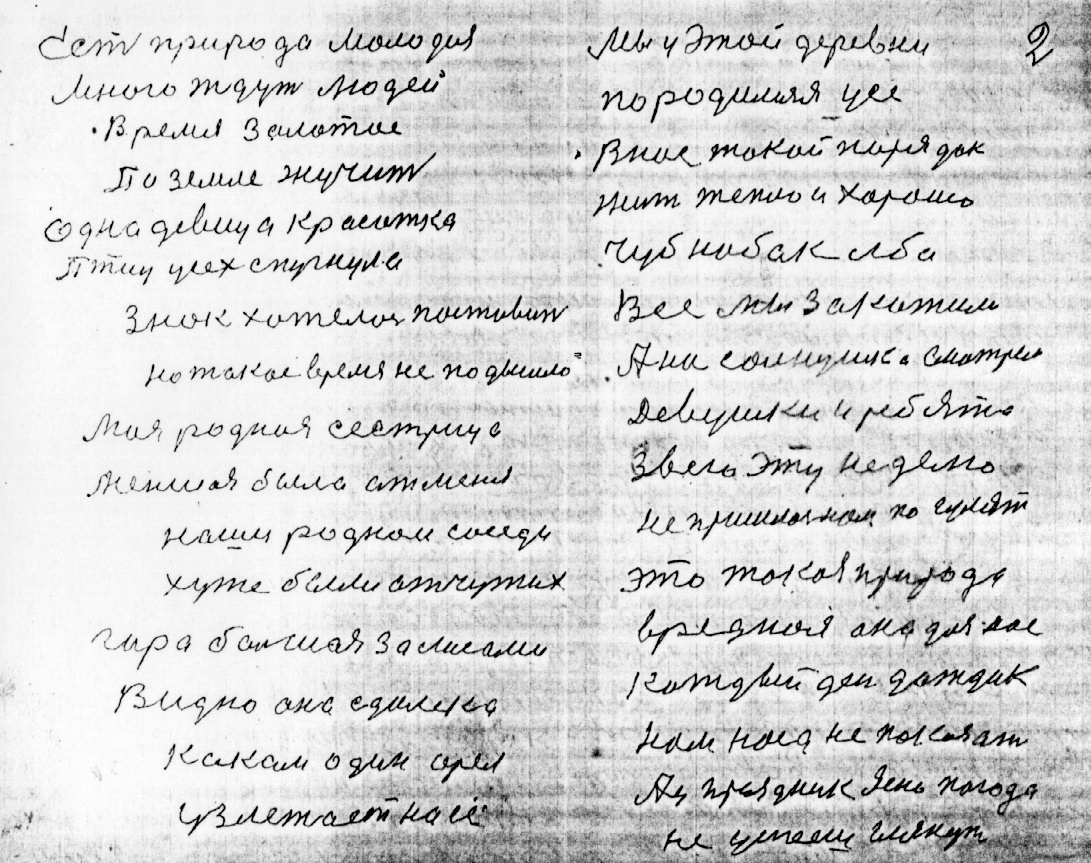 Ест природа молодая
Много ждут людей
Время Залотое
По земле жучит
Одна девица красотка
Птиц усех спугнула
Знак хотела поставит
но такое время не подышло
Моя родная сестрица
Меншая была от меня
наши родном соседы
хуже были от чужих
гора болшая за лесами
Видно она сдалека
Какам один орел
Узлетает на её
Мы у этой деревни 2
породилися усе
В нас такой порядок
жит тепло и хорошо
Чуб на бак лба
Все мы закотили
А на солнушка смотрел
Девушки и ребята
Звего эту неделю
не пришлос нам по гулят
это такая природа
вредная она для нас
Каждый ден даждик
нам нос не показат
А у праздник день погода
не успееш глянут